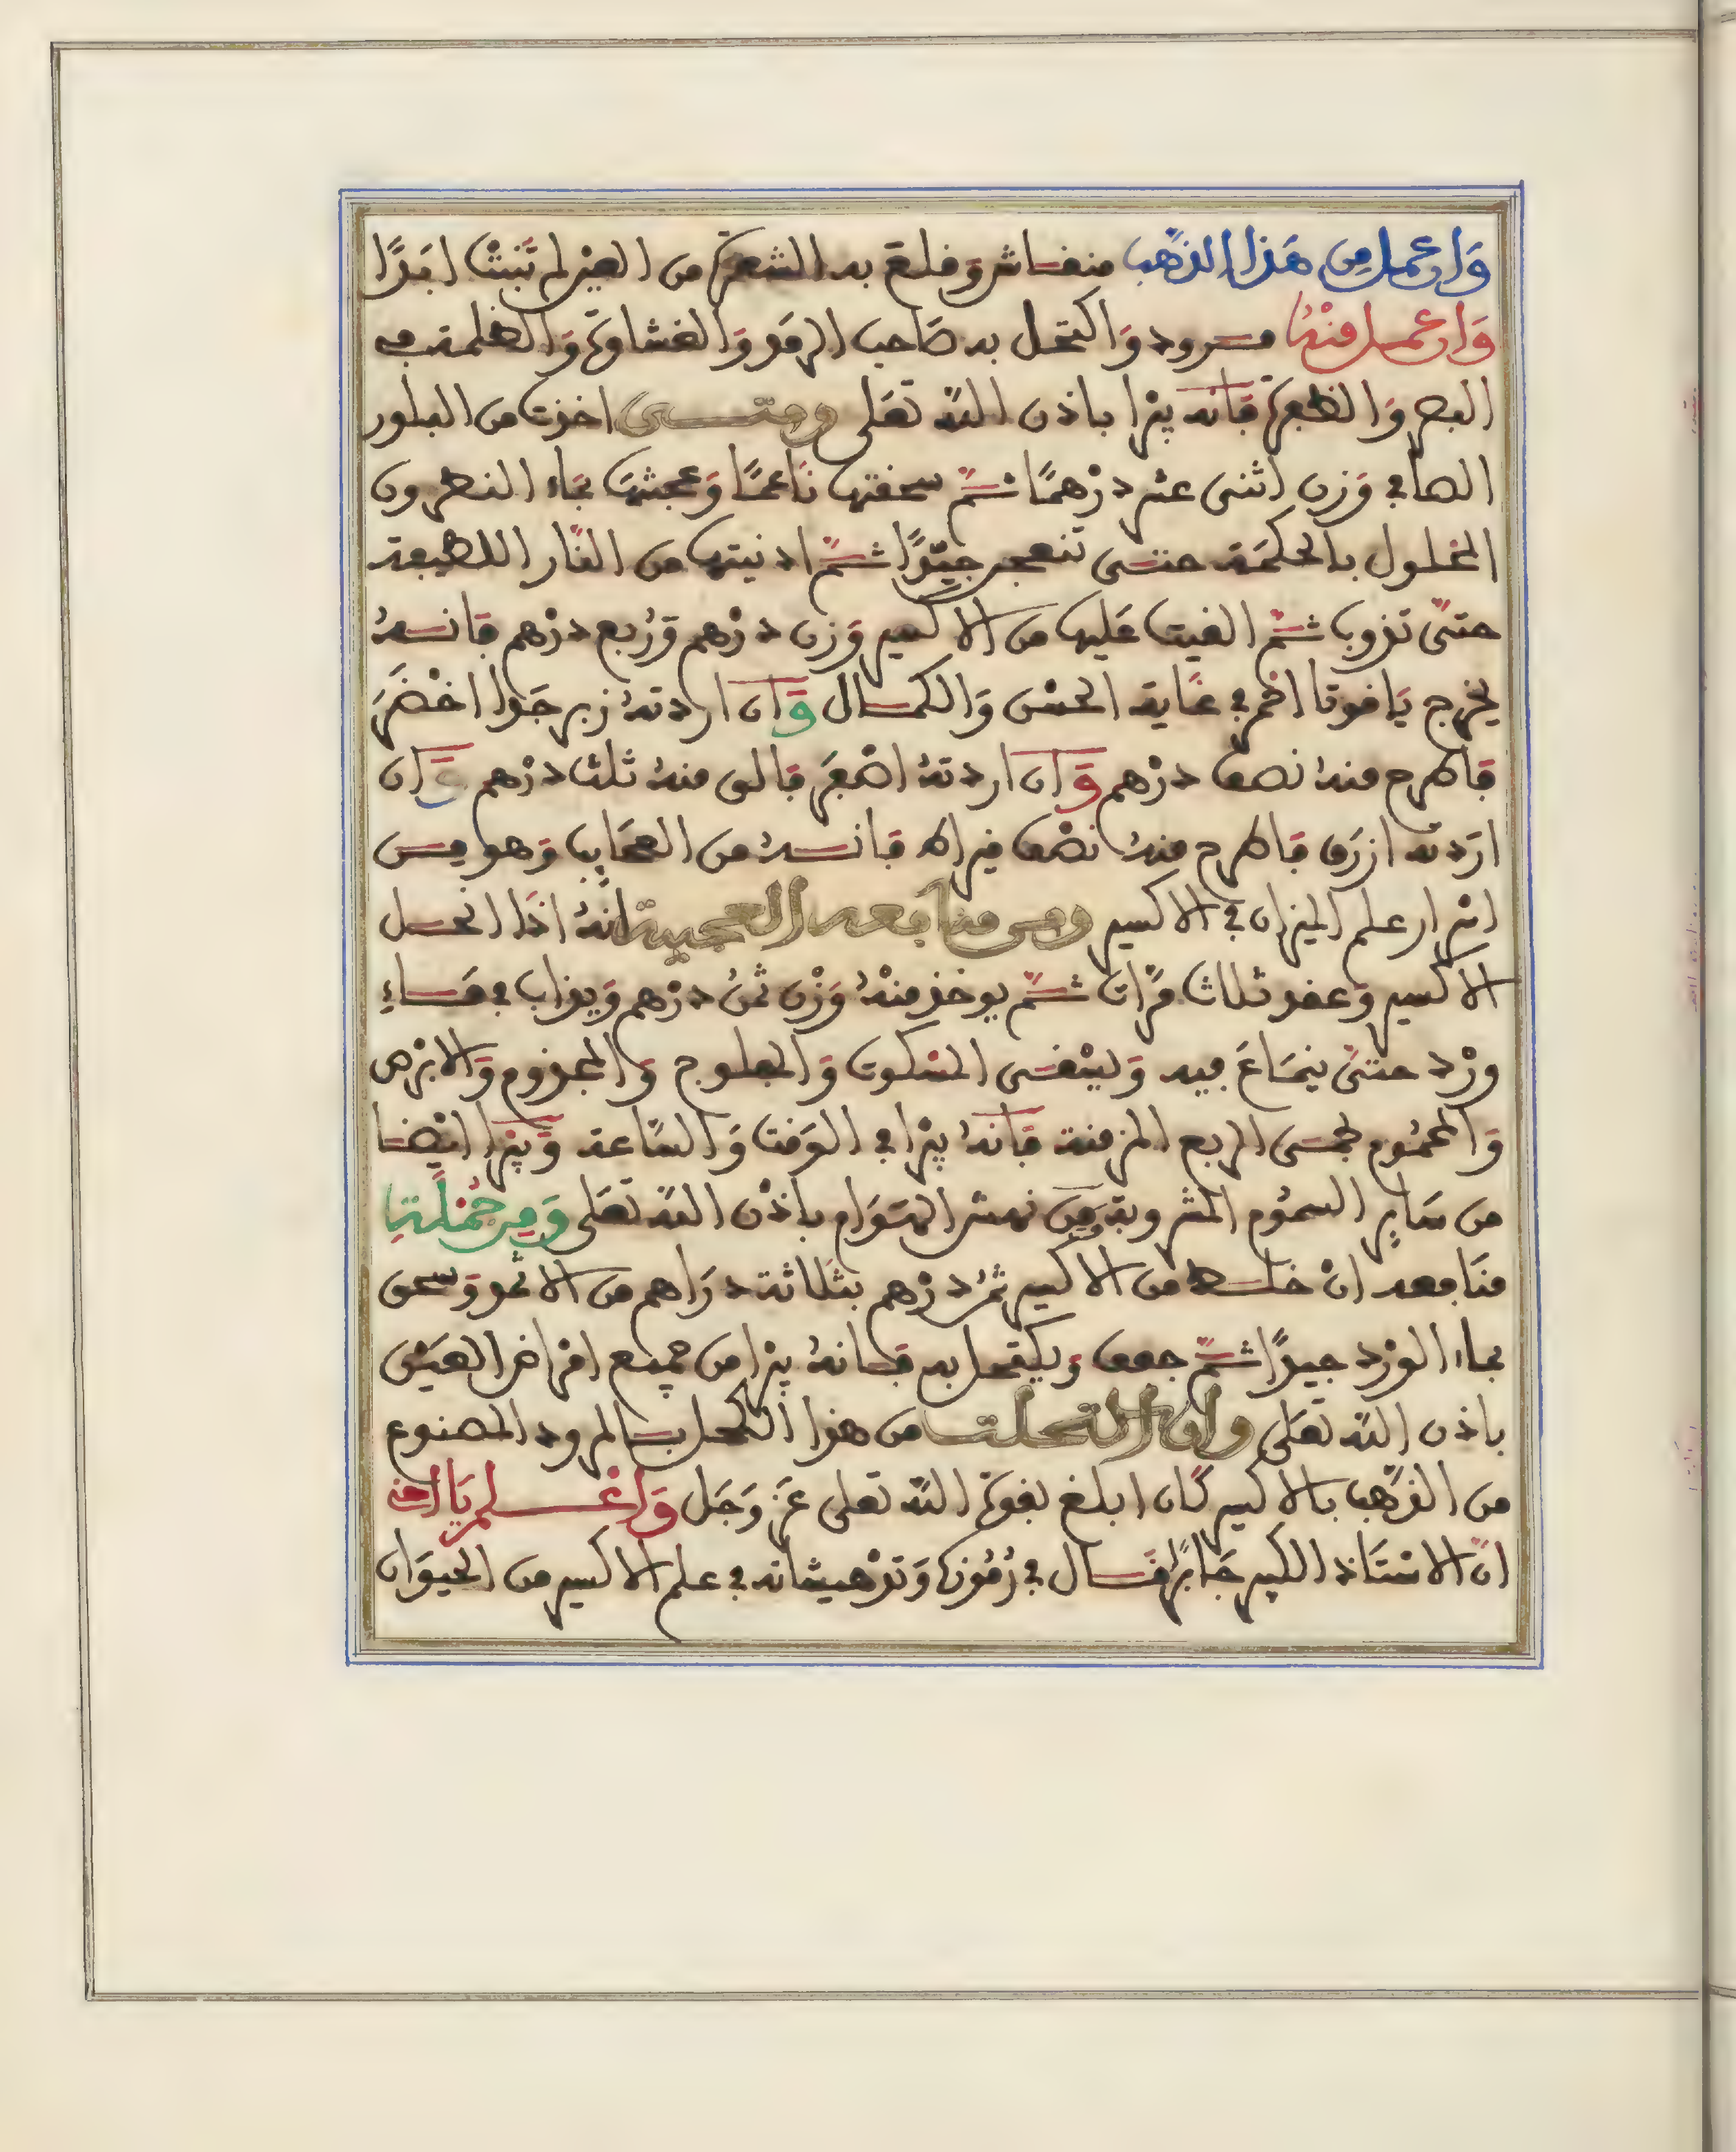 وَاعمل مِن هَذا الذَّهب منفاش وَفلع به الشعرة من العين لم تَنبُث ابَدًا
وَاعمل منْهُ مرود وَاكتحل به صَاحب الرمَد وَالغشاوَة وَالظلمة في
البصر وَالظفرة فَانه يبرا باذن اللّه تعَلى ومتى اخذت من البلور
الصافي وَزن اثنى عشر درْهمًا ثمّ سحفتها نَاعمًا وَعجنْتهَا بمَاء النطرون
المحلول بالحكمَة حتى تنعجن جيّدًا ثمّ ادنيتها من النَّار اللطيفة
حتىّ تذوب ثمّ الفيت عَليها من الاكسير وَزن درْهم وَرُبع درْهم فَانهُ
يخرج يَافوتا احْمر في غَاية الحسْن وَالكمال وَان اردتهُ زبرجَدا اخْضَرَ
فَاطرح منهُ نصف درْهم وَان اردتهُ اصْفَرَ فَالق منهُ ثلث درْهم وَان
ارَدته ازرَق فَاطرح منهُ نصْف فيراط فَانهُ من العجَايب وَهو مِن
اسْرار علم الميزان في الاكسير ومن منافعه العجيبة انّهُ اذَا انحل
الاكسير وَعفد ثلاث مرَّات ثمّ يوخذ منْهُ وَزْن ثمنُ درْهم وَيذاب في مَاءِ
ورْد حتىّ ينمَاعَ فيه وَليسْفى المسْكوت وَالمفلوج وَالمجذوم وَالابْرص
وَالمحمُوم بحمى الربع المزمنة فَانهُ يبْرا في الوَفت وَالسَّاعة وَيبْرا ايْضا
من سَاير السمُوم المشروبة وَمن نهش الهَوَام باذْن اللّه تعَلى وَمِن جُمْلَة
منَافعه انْ خلط من الاكسير ثمنُ درْهم بثلَاثة درَاهم من الاثمد وَسحق
بماء الوَرْد جيدًا ثمّ جفف وَيكتحل به فَانهُ يبْرا من جميع امْراض العيْن
باذن اللّه تعَلى وان اكتحلت من هذا الكحل بالمرود المصنوع
من الذهَّب بالاكسير كَان ابلغ بفوة اللّه تعلى عَز وَجَل وَاعْلم يَا اخي
انّ الاسْتَاذ الكبير جَابرًا فَال في رُمُوزه وَتدْهيشاته في علم الاكسير من الحيوَان